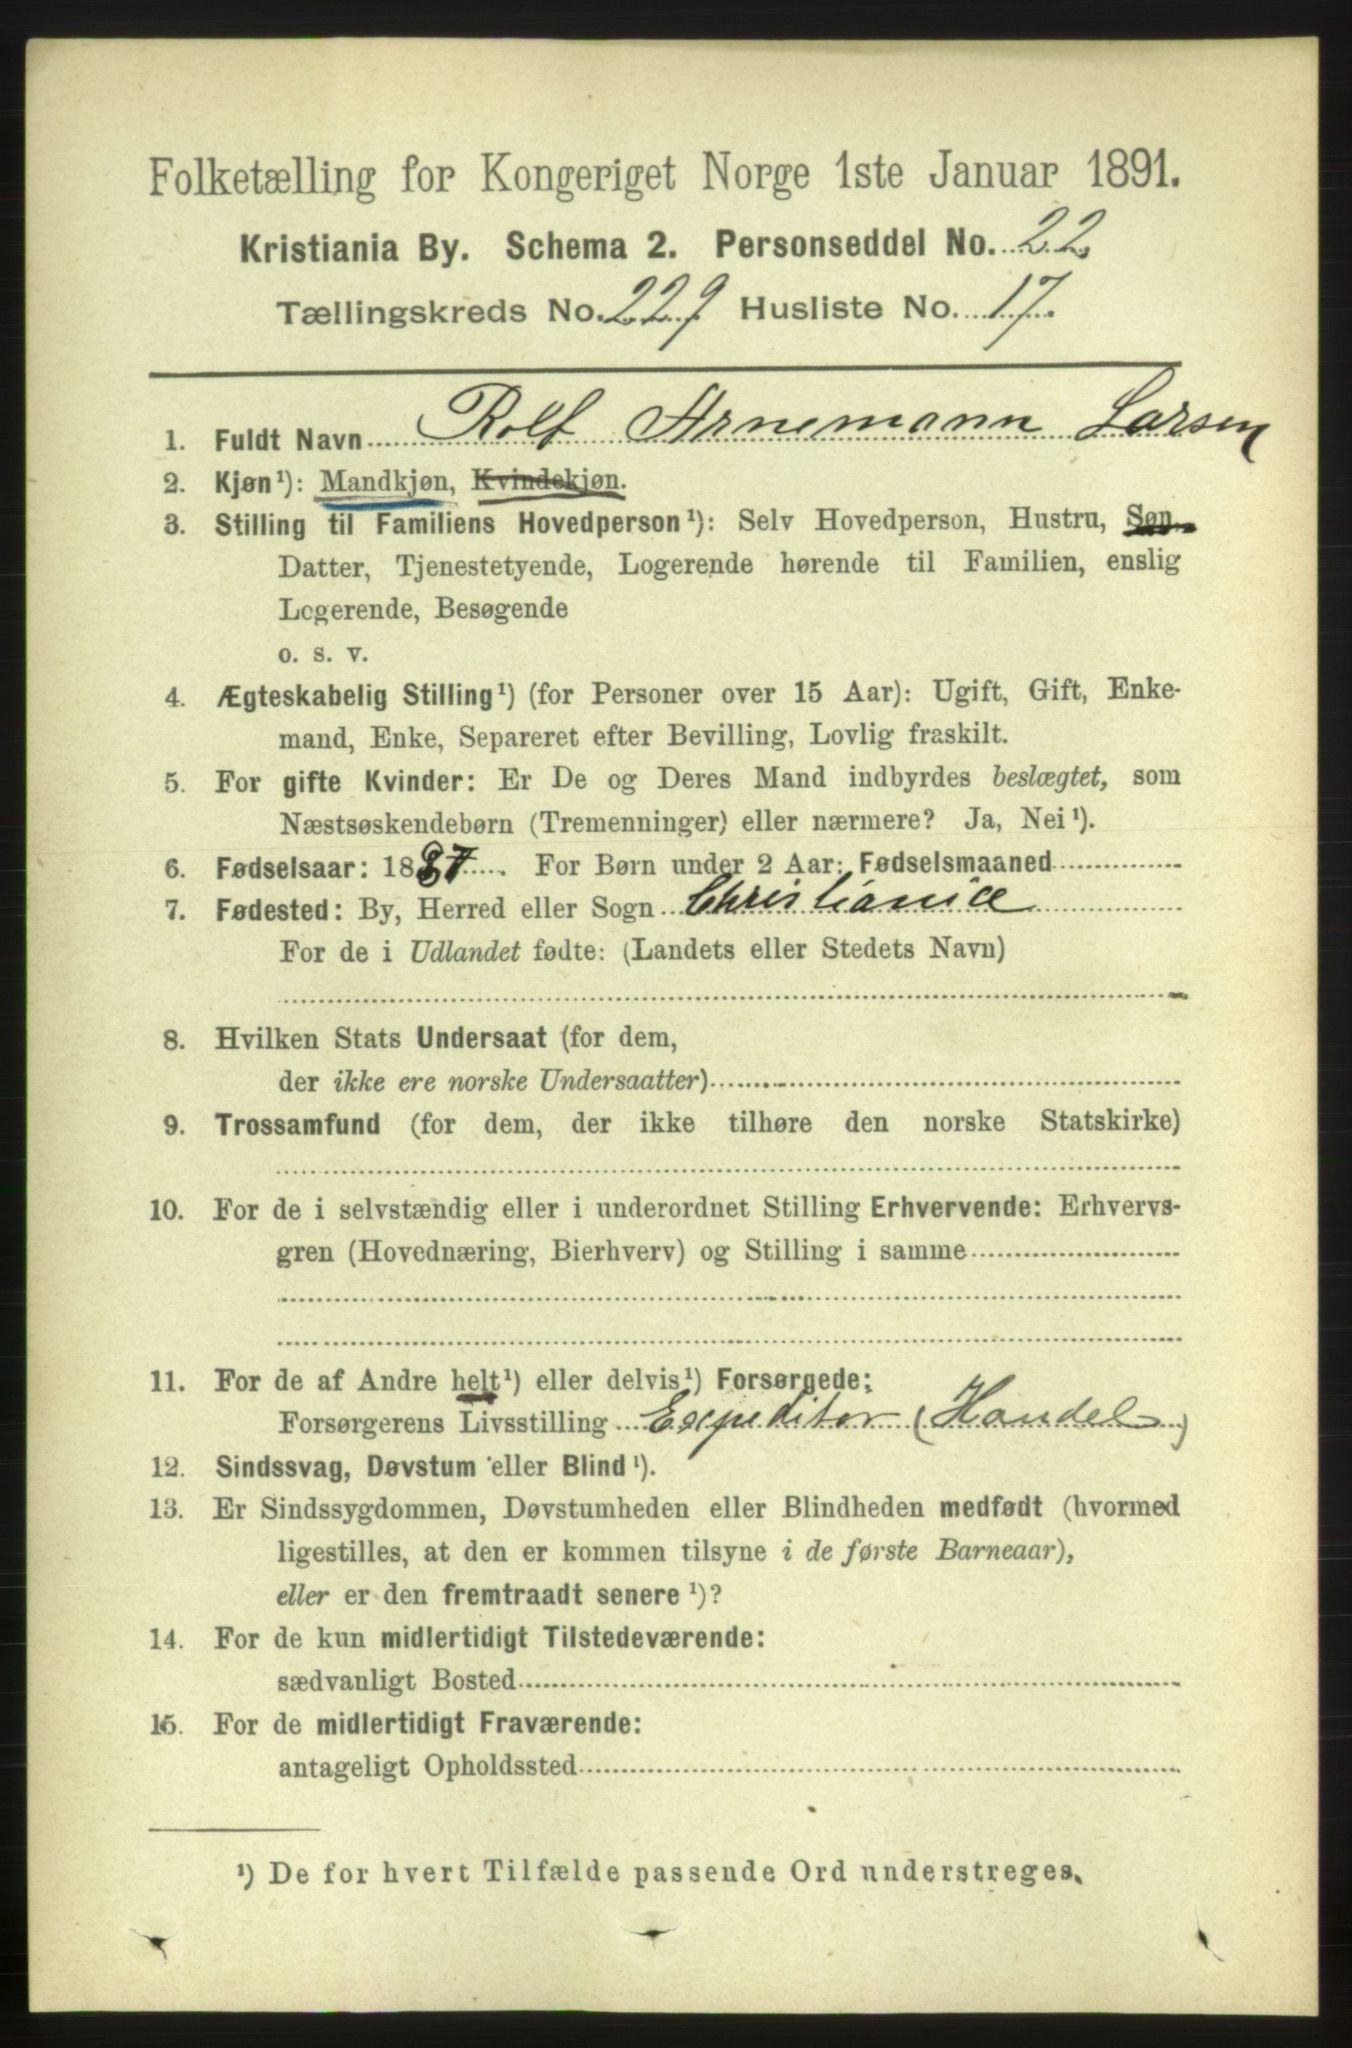 Folketælling for Kongeriget Norge 1ste Januar 1891.
Kristiania By. Schema 2. Personseddel No. 22
Tællingskreds No. 229 Husliste No. 17.
1. Fuldt Navn Rolf Arnemann Larsen
2. Kjøn¹): Mandkjøn, Kvindekjøn.
3. Stilling til Familiens Hovedperson¹): Selv Hovedperson, Hustru, Søn,
Datter, Tjenestetyende, Logerende hørende til Familien, enslig
Logerende, Besøgende
o. s. v.
4. Ægteskabelig Stilling¹) (for Personer over 15 Aar): Ugift, Gift, Enke-
mand, Enke, Separeret efter Bevilling, Lovlig fraskilt.
5. For gifte Kvinder: Er De og Deres Mand indbyrdes beslægtet, som
Næstsøskendebørn (Tremenninger) eller nærmere? Ja, Nei¹).
6. Fødselsaar: 1887. For Børn under 2 Aar: Fødselsmaaned
7. Fødested: By, Herred eller Sogn Christiania
For de i Udlandet fødte: (Landets eller Stedets Navn)
8. Hvilken Stats Undersaat (for dem,
der ikke ere norske Undersaatter)
9. Trossamfund (for dem, der ikke tilhøre den norske Statskirke)
10. For de i selvstændig eller i underordnet Stilling Erhvervende: Erhvervs-
gren (Hovednæring, Bierhverv) og Stilling i samme
11. For de af Andre helt¹) eller delvis¹) Forsørgede:
Forsørgerens Livsstilling Expeditor (Handel)
12. Sindssvag, Døvstum eller Blind¹).
13. Er Sindssygdommen, Døvstumheden eller Blindheden medfødt (hvormed
ligestilles, at den er kommen tilsyne i de første Barneaar),
eller er den fremtraadt senere¹)?
14. For de kun midlertidigt Tilstedeværende:
sædvanligt Bosted
15. For de midlertidigt Fraværende:
antageligt Opholdssted
¹) De for hvert Tilfælde passende Ord understreges.